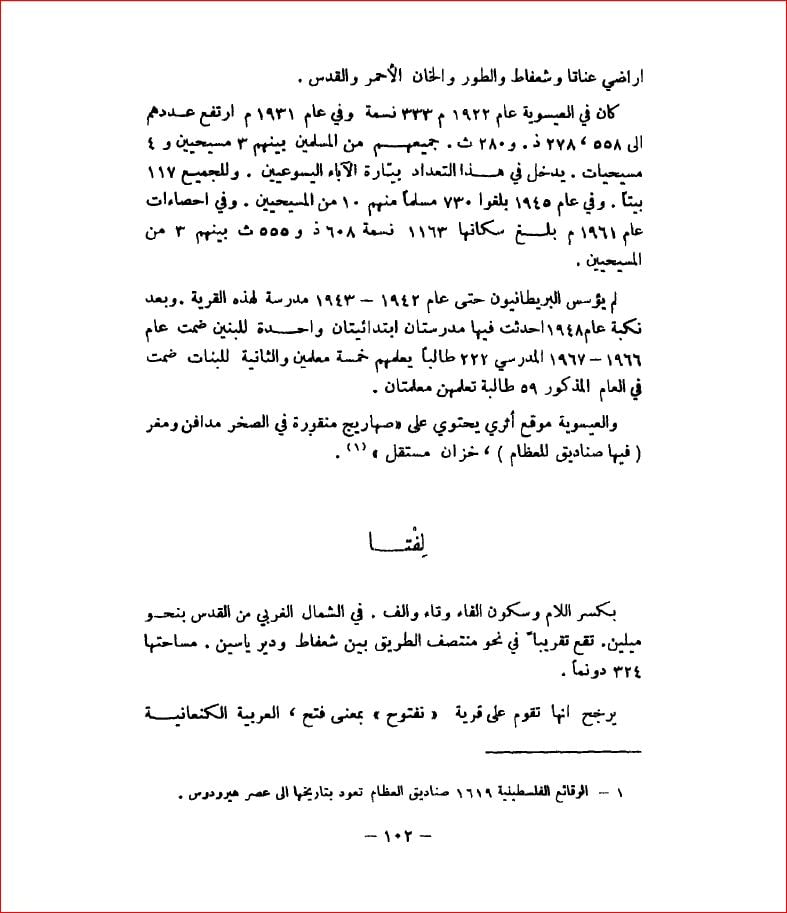 اراضي عناتا وشعفاط والطور والخان الأحمر والقدس .
كان في العيسوية عام ١٩٢٢ م ٣٣٣ نسمة وفي عام ١٩٣١ م ارتفع عددهم
الى ٥٥٨ ، ٢٧٨ ذ . و ٢٨٠ ث . جميعهم من المسلمين بينهم ٣ مسيحيين و ٤
مسيحيات . يدخل في هذا التعداد بيّارة الآباء اليسوعيين . وللجميع ١١٧
بيتاً . وفي عام ١٩٤٥ بلغوا ٧٣٠ مسلماً منهم ١٠ من المسيحيين . وفي احصاءات
عام ١٩٦١ م بلغ سكانها ١١٦٣ نسمة ٦٠٨ ذ و ٥٥٥ ث بينهم ٣ من
المسيحيين .
لم يؤسس البريطانيون حتى عام ١٩٤٢ – ١٩٤٣ مدرسة لهذه القرية . وبعد
نكبة عام ١٩٤٨ احدثت فيها مدرستان ابتدائيتان واحدة للبنين ضمت عام
١٩٦٦ – ١٩٦٧ المدرسي ٢٢٢ طالباً يعلمهم خمسة معلمين والثانية للبنات ضمت
في العام المذكور ٥٩ طالبة تعلمهن معلمتان .
والعيسوية موقع أثري يحتوي على «صهاريج منقورة في الصخر مدافن ومغر
( فيها صناديق للعظام ) ، خزان مستقل » (١) .
لِفْتا
بكسر اللام وسكون الفاء وتاء والف . في الشمال الغربي من القدس بنحو
ميلين . تقع تقريباً في نحو منتصف الطريق بين شعفاط ودير ياسين . مساحتها
٣٢٤ دونماً .
يرجح انها تقوم على قرية « نفتوح » بمعنى فتح ، العربية الكنعانية
١ – الوقائع الفلسطينية ١٦١٩ صناديق العظام تعود بتاريخها الى عصر هيرودوس .
– ١٠٢ –